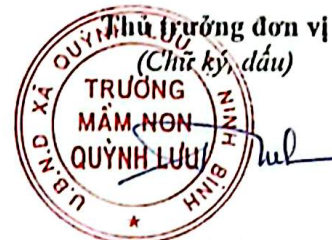 Thủ trưởng đơn vị
(Chữ ký, dấu)
U.B.N.D XÃ QUỲNH LƯU NINH BÌNH
TRƯỜNG
MẦM NON
QUỲNH LƯU